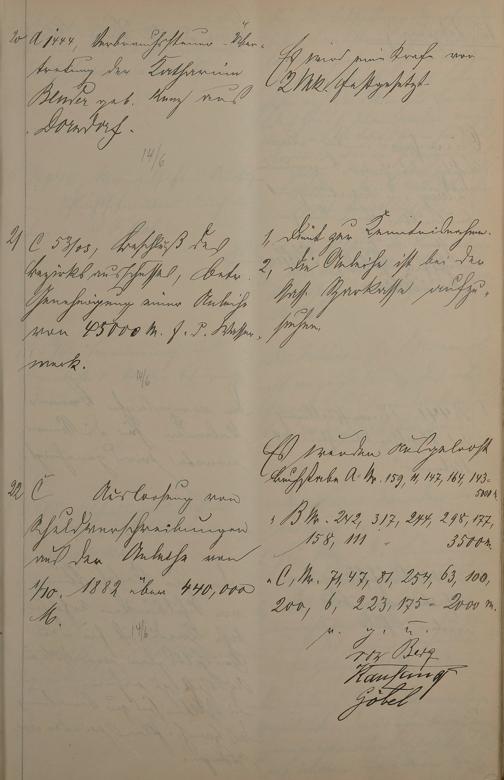 20 A 1444, Verbrauchssteuer-Über-
tretung der Katharina
Bender geb. Kunz aus
Dorndorf.
14/6
Es wird eine Strafe von
2 Mk. festgesetzt.
21 C 53/03, Beschluß des
Bezirksausschusses, betr.
Genehmigung einer Anleihe
von 45000 M. f. d. Wasser-
werk.
14/6
1, Dient zur Kenntnisnahme.
2, Die Anleihe ist bei der
Sparkasse aufzu-
nehmen.
22 C Auslosung von
Schuldverschreibungen
aus der Anleihe von
1/10. 1882 über 440,000
M.
14/6
Es werden ausgelost
Buchstabe A Nr. 159, 11, 147, 164, 143 -
5000 M.
" B Nr. 242, 317, 244, 298, 177,
158, 111 3500 M.
" C, Nr. 71, 47, 81, 254, 63, 100,
200, 6, 223, 175 - 2000 M.
v. g. u.
von Berg
Göbel